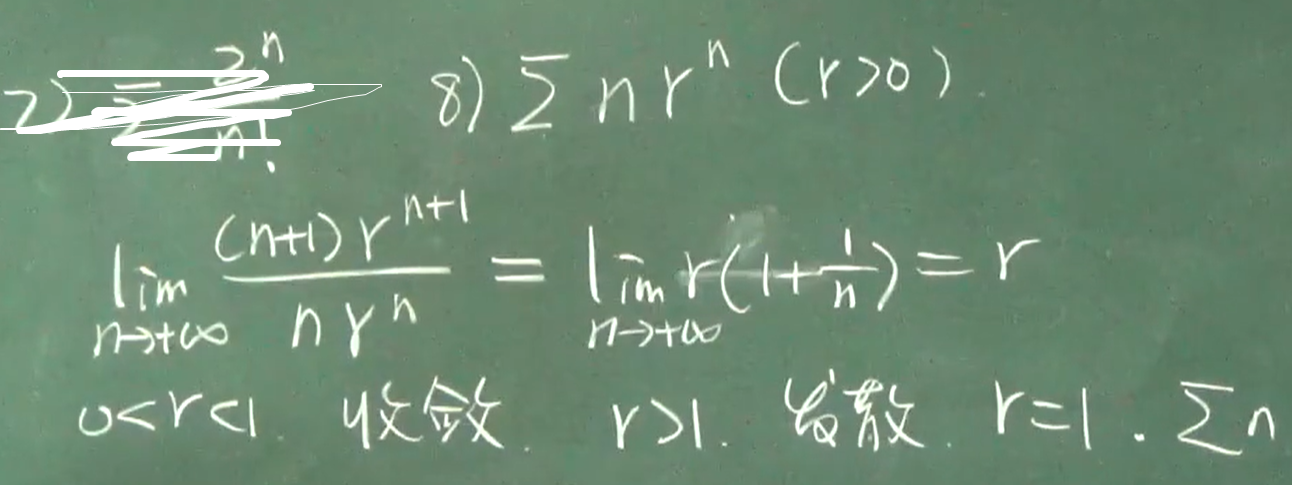 8) Σ n r^n (r>0).
lim_{n→+∞} \frac{(n+1) r^{n+1}}{n r^n} = lim_{n→+∞} r(1+\frac{1}{n}) = r
0<r<1. 收敛. r>1. 发散. r=1. Σn